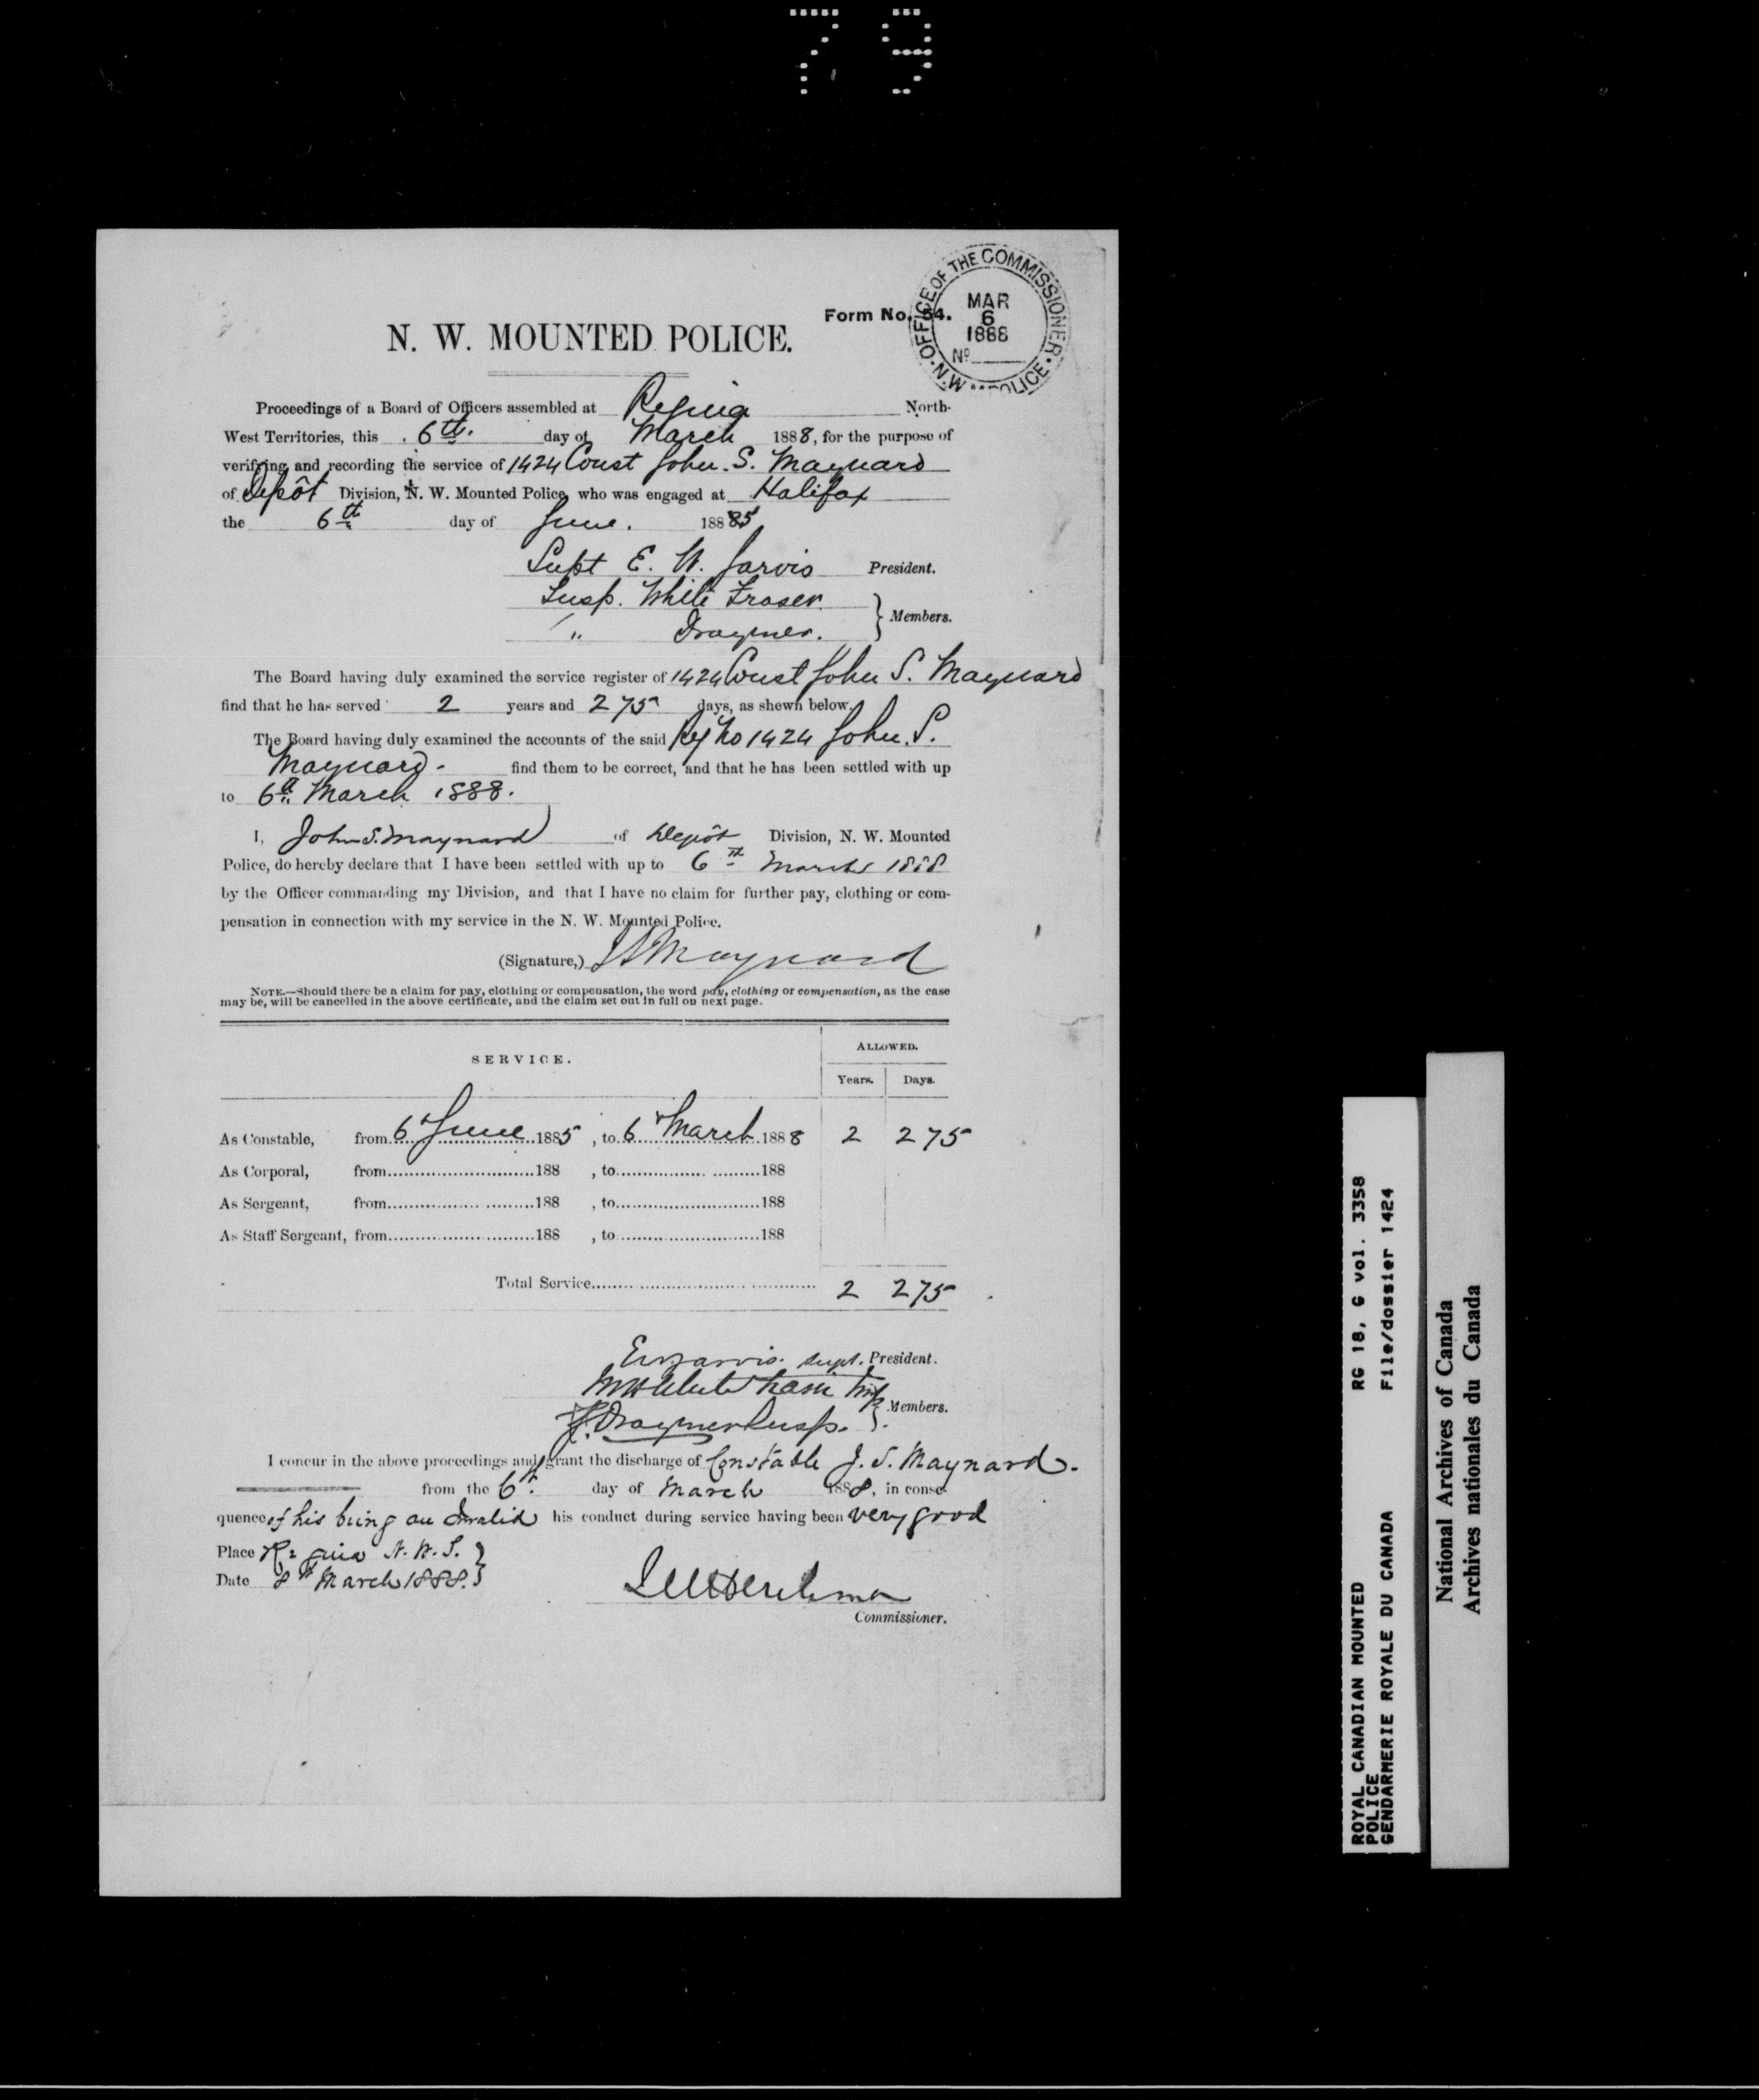 79
OFFICE OF THE COMMISSIONER • N.W. M. POLICE •
MAR
6
1888
No
Form No. 54.
N. W. MOUNTED POLICE.
Proceedings of a Board of Officers assembled at Regina North-
West Territories, this 6th. day of March 1888, for the purpose of
verifying and recording the service of 1424 Const John. S. Maynard
of Depôt Division, N. W. Mounted Police, who was engaged at Halifax
the 6th day of June. 188 85
Supt E. W. Jarvis President.
Insp. White Fraser. } Members.
" Drayner.
The Board having duly examined the service register of 1424 Const John S. Maynard
find that he has served 2 years and 275 days, as shewn below.
The Board having duly examined the accounts of the said Reg No 1424 John. S.
Maynard. find them to be correct, and that he has been settled with up
to 6th March 1888.
I, John S. Maynard of Depôt Division, N. W. Mounted
Police, do hereby declare that I have been settled with up to 6th March 1888
by the Officer commanding my Division, and that I have no claim for further pay, clothing or com-
pensation in connection with my service in the N. W. Mounted Police.
(Signature,) JS Maynard
NOTE.—Should there be a claim for pay, clothing or compensation, the word pay, clothing or compensation, as the case
may be, will be cancelled in the above certificate, and the claim set out in full on next page.
SERVICE.
ALLOWED.
Years. Days.
As Constable, from 6th June 1885, to 6th March 1888 2 275
As Corporal, from 188 , to 188
As Sergeant, from 188 , to 188
As Staff Sergeant, from 188 , to 188
Total Service 2 275
EW Jarvis. Supt. President.
Insp } Members.
Drayner Insp.
I concur in the above proceedings and grant the discharge of Constable J. S. Maynard.
from the 6th. day of March 1888, in conse-
quence of his being an Invalid his conduct during service having been very good
Place Regina N.W.T. }
Date 8th March 1888. }
LWHerchmer
Commissioner.
ROYAL CANADIAN MOUNTED RG 18, G vol. 3358
POLICE
GENDARMERIE ROYALE DU CANADA File/dossier 1424
National Archives of Canada
Archives nationales du Canada